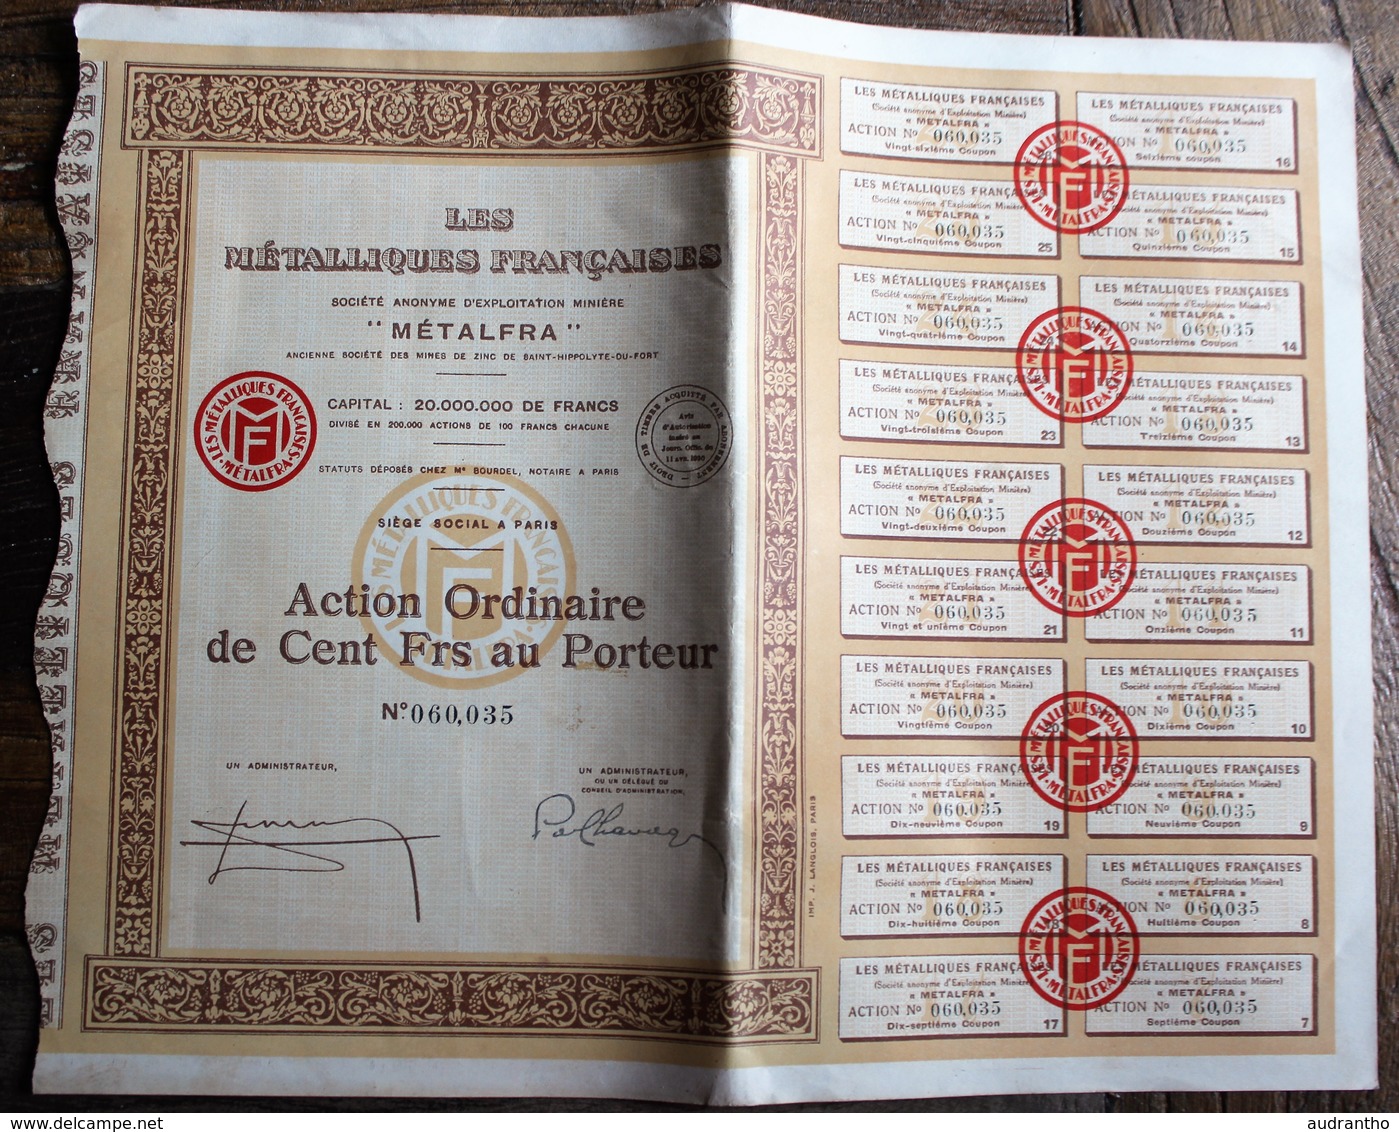 LES
MÉTALLIQUES FRANÇAISES
SOCIÉTÉ ANONYME D'EXPLOITATION MINIÈRE
"MÉTALFRA"
ANCIENNE SOCIÉTÉ DES MINES DE ZINC DE SAINT-HIPPOLYTE-DU-FORT
CAPITAL : 20.000.000 DE FRANCS
DIVISÉ EN 200.000 ACTIONS DE 100 FRANCS CHACUNE
LES MÉTALLIQUES FRANÇAISES · MÉTALFRA ·
MF
DROIT DE TIMBRE ACQUITTÉ PAR ABONNEMENT
Avis
d'Autorisation
inséré au
Journ. Offic. du
STATUTS DÉPOSÉS CHEZ Me BOURDEL, NOTAIRE A PARIS
SIÈGE SOCIAL A PARIS
Action Ordinaire
de Cent Frs au Porteur
N° 060,035
UN ADMINISTRATEUR,
UN ADMINISTRATEUR,
OU UN DÉLÉGUÉ DU
CONSEIL D'ADMINISTRATION,
IMP. J. LANGLOIS, PARIS
LES MÉTALLIQUES FRANÇAISES
(Société anonyme d'Exploitation Minière)
« METALFRA »
ACTION No 060,035
Vingt-sixième Coupon
LES MÉTALLIQUES FRANÇAISES
(Société anonyme d'Exploitation Minière)
« METALFRA »
ACTION No 060,035
Vingt-cinquième Coupon
25
LES MÉTALLIQUES FRANÇAISES
(Société anonyme d'Exploitation Minière)
« METALFRA »
ACTION No 060,035
Vingt-quatrième Coupon
LES MÉTALLIQUES FRANÇAISES
(Société anonyme d'Exploitation Minière)
« METALFRA »
ACTION No 060,035
Vingt-troisième Coupon
23
LES MÉTALLIQUES FRANÇAISES
(Société anonyme d'Exploitation Minière)
« METALFRA »
ACTION No 060,035
Vingt-deuxième Coupon
LES MÉTALLIQUES FRANÇAISES
(Société anonyme d'Exploitation Minière)
« METALFRA »
ACTION No 060,035
Vingt et unième Coupon
21
LES MÉTALLIQUES FRANÇAISES
(Société anonyme d'Exploitation Minière)
« METALFRA »
ACTION No 060,035
Vingtième Coupon
LES MÉTALLIQUES FRANÇAISES
(Société anonyme d'Exploitation Minière)
« METALFRA »
ACTION No 060,035
Dix-neuvième Coupon
19
LES MÉTALLIQUES FRANÇAISES
(Société anonyme d'Exploitation Minière)
« METALFRA »
ACTION No 060,035
Dix-huitième Coupon
LES MÉTALLIQUES FRANÇAISES
(Société anonyme d'Exploitation Minière)
« METALFRA »
ACTION No 060,035
Dix-septième Coupon
17
LES MÉTALLIQUES FRANÇAISES
(Société anonyme d'Exploitation Minière)
« METALFRA »
ACTION No 060,035
Seizième coupon
16
LES MÉTALLIQUES FRANÇAISES
(Société anonyme d'Exploitation Minière)
« METALFRA »
ACTION No 060,035
Quinzième Coupon
15
LES MÉTALLIQUES FRANÇAISES
(Société anonyme d'Exploitation Minière)
« METALFRA »
ACTION No 060,035
Quatorzième Coupon
14
LES MÉTALLIQUES FRANÇAISES
(Société anonyme d'Exploitation Minière)
« METALFRA »
ACTION No 060,035
Treizième Coupon
13
LES MÉTALLIQUES FRANÇAISES
(Société anonyme d'Exploitation Minière)
« METALFRA »
ACTION No 060,035
Douzième Coupon
12
LES MÉTALLIQUES FRANÇAISES
(Société anonyme d'Exploitation Minière)
« METALFRA »
ACTION No 060,035
Onzième Coupon
11
LES MÉTALLIQUES FRANÇAISES
(Société anonyme d'Exploitation Minière)
« METALFRA »
ACTION No 060,035
Dixième Coupon
10
LES MÉTALLIQUES FRANÇAISES
(Société anonyme d'Exploitation Minière)
« METALFRA »
ACTION No 060,035
Neuvième Coupon
9
LES MÉTALLIQUES FRANÇAISES
(Société anonyme d'Exploitation Minière)
« METALFRA »
ACTION No 060,035
Huitième Coupon
8
LES MÉTALLIQUES FRANÇAISES
(Société anonyme d'Exploitation Minière)
« METALFRA »
ACTION No 060,035
Septième Coupon
7
delcampe.net
audrantho